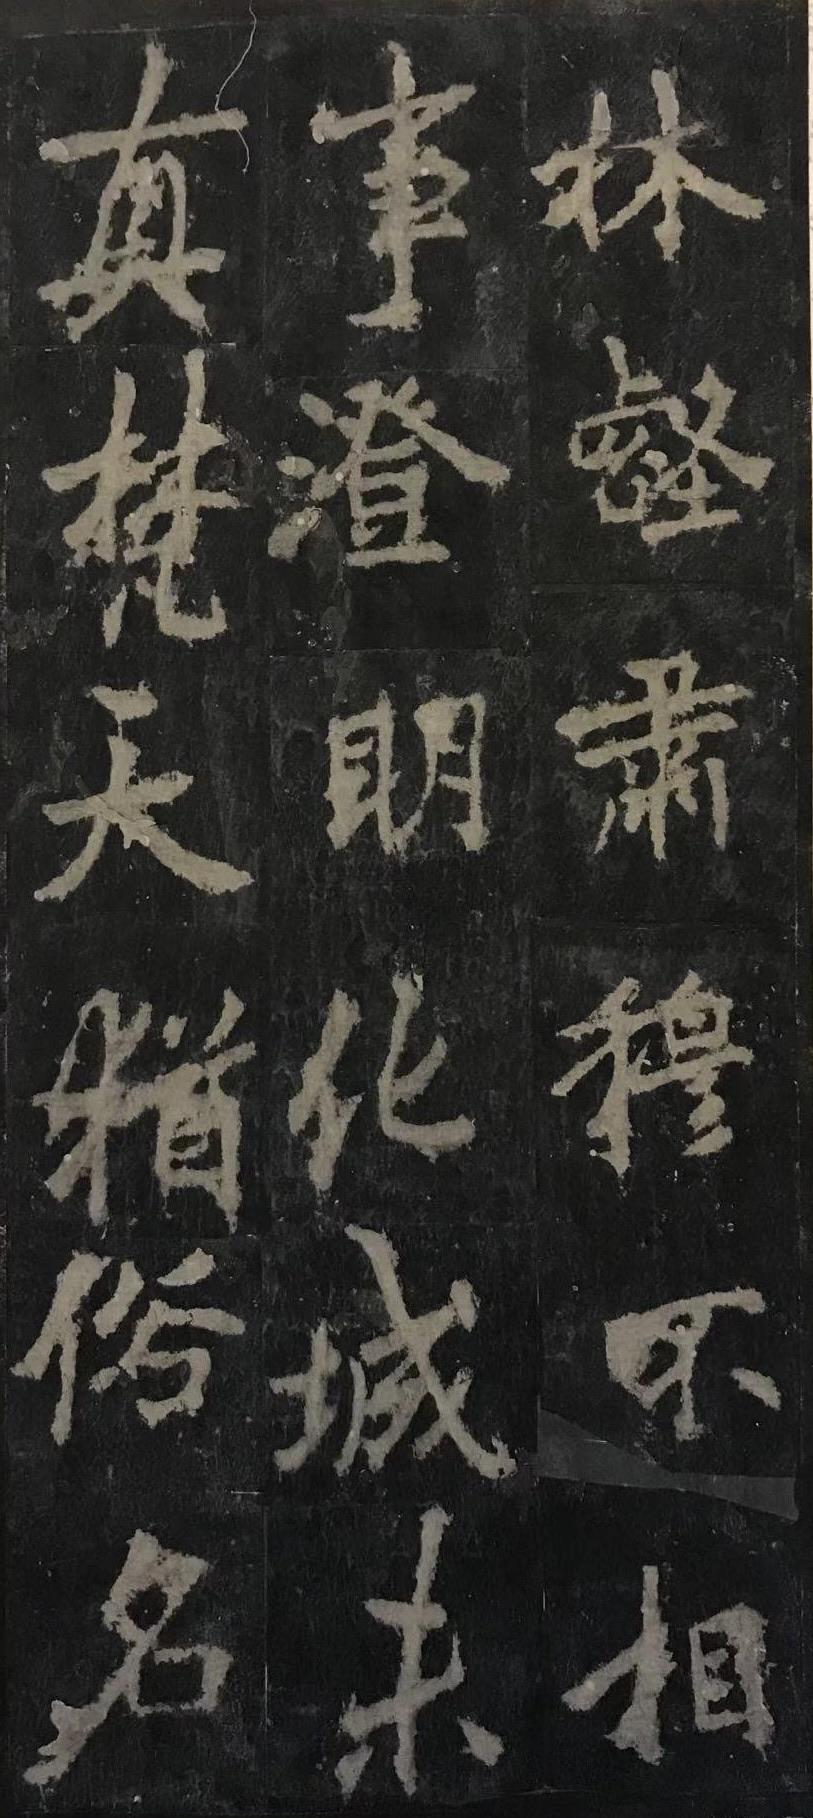 林壑肅穆不相
事澄明化城未
真梵天猶俗名